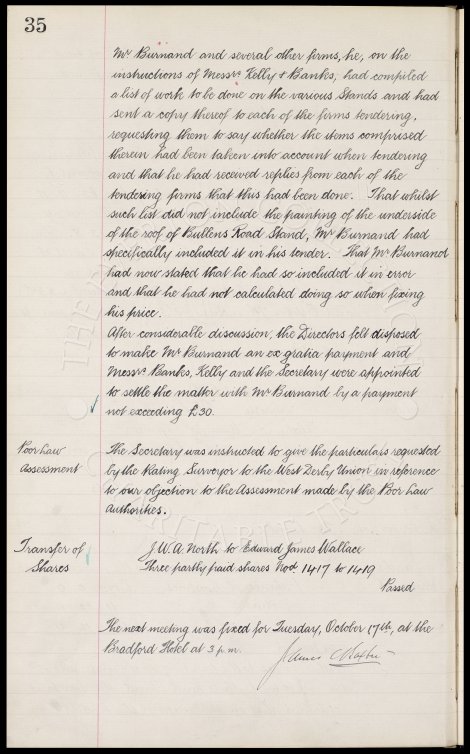 35
Mr Burnand and several other firms, he, on the
instructions of Messrs Kelly & Banks, had compiled
a list of work to be done on the various Stands and had
sent a copy thereof to each of the firms tendering,
requesting them to say whether the items comprised
therein had been taken into account when tendering
and that he had received replies from each of the
tendering firms that this had been done. That whilst
such list did not include the painting of the underside
of the roof of Bullens Road Stand, Mr Burnand had
specifically included it in his tender. That Mr Burnand
had now stated that he had so included it in error
and that he had not calculated doing so when fixing
his price.
After considerable discussion, the Directors felt disposed
to make Mr Burnand an ex gratia payment and
Messrs Banks, Kelly and the Secretary were appointed
to settle the matter with Mr Burnand by a payment
not exceeding £30.
Poor Law
Assessment
The Secretary was instructed to give the particulars requested
by the Rating Surveyor to the West Derby Union in reference
to our objection to the Assessment made by the Poor Law
Authorities.
Transfer of
Shares
J. W. A. North to Edward James Wallace
Three partly paid shares Nod 1417 to 1419
Passed
The next meeting was fixed for Tuesday, October 17th, at the
Bradford Hotel at 3 p.m.
James C Baxter